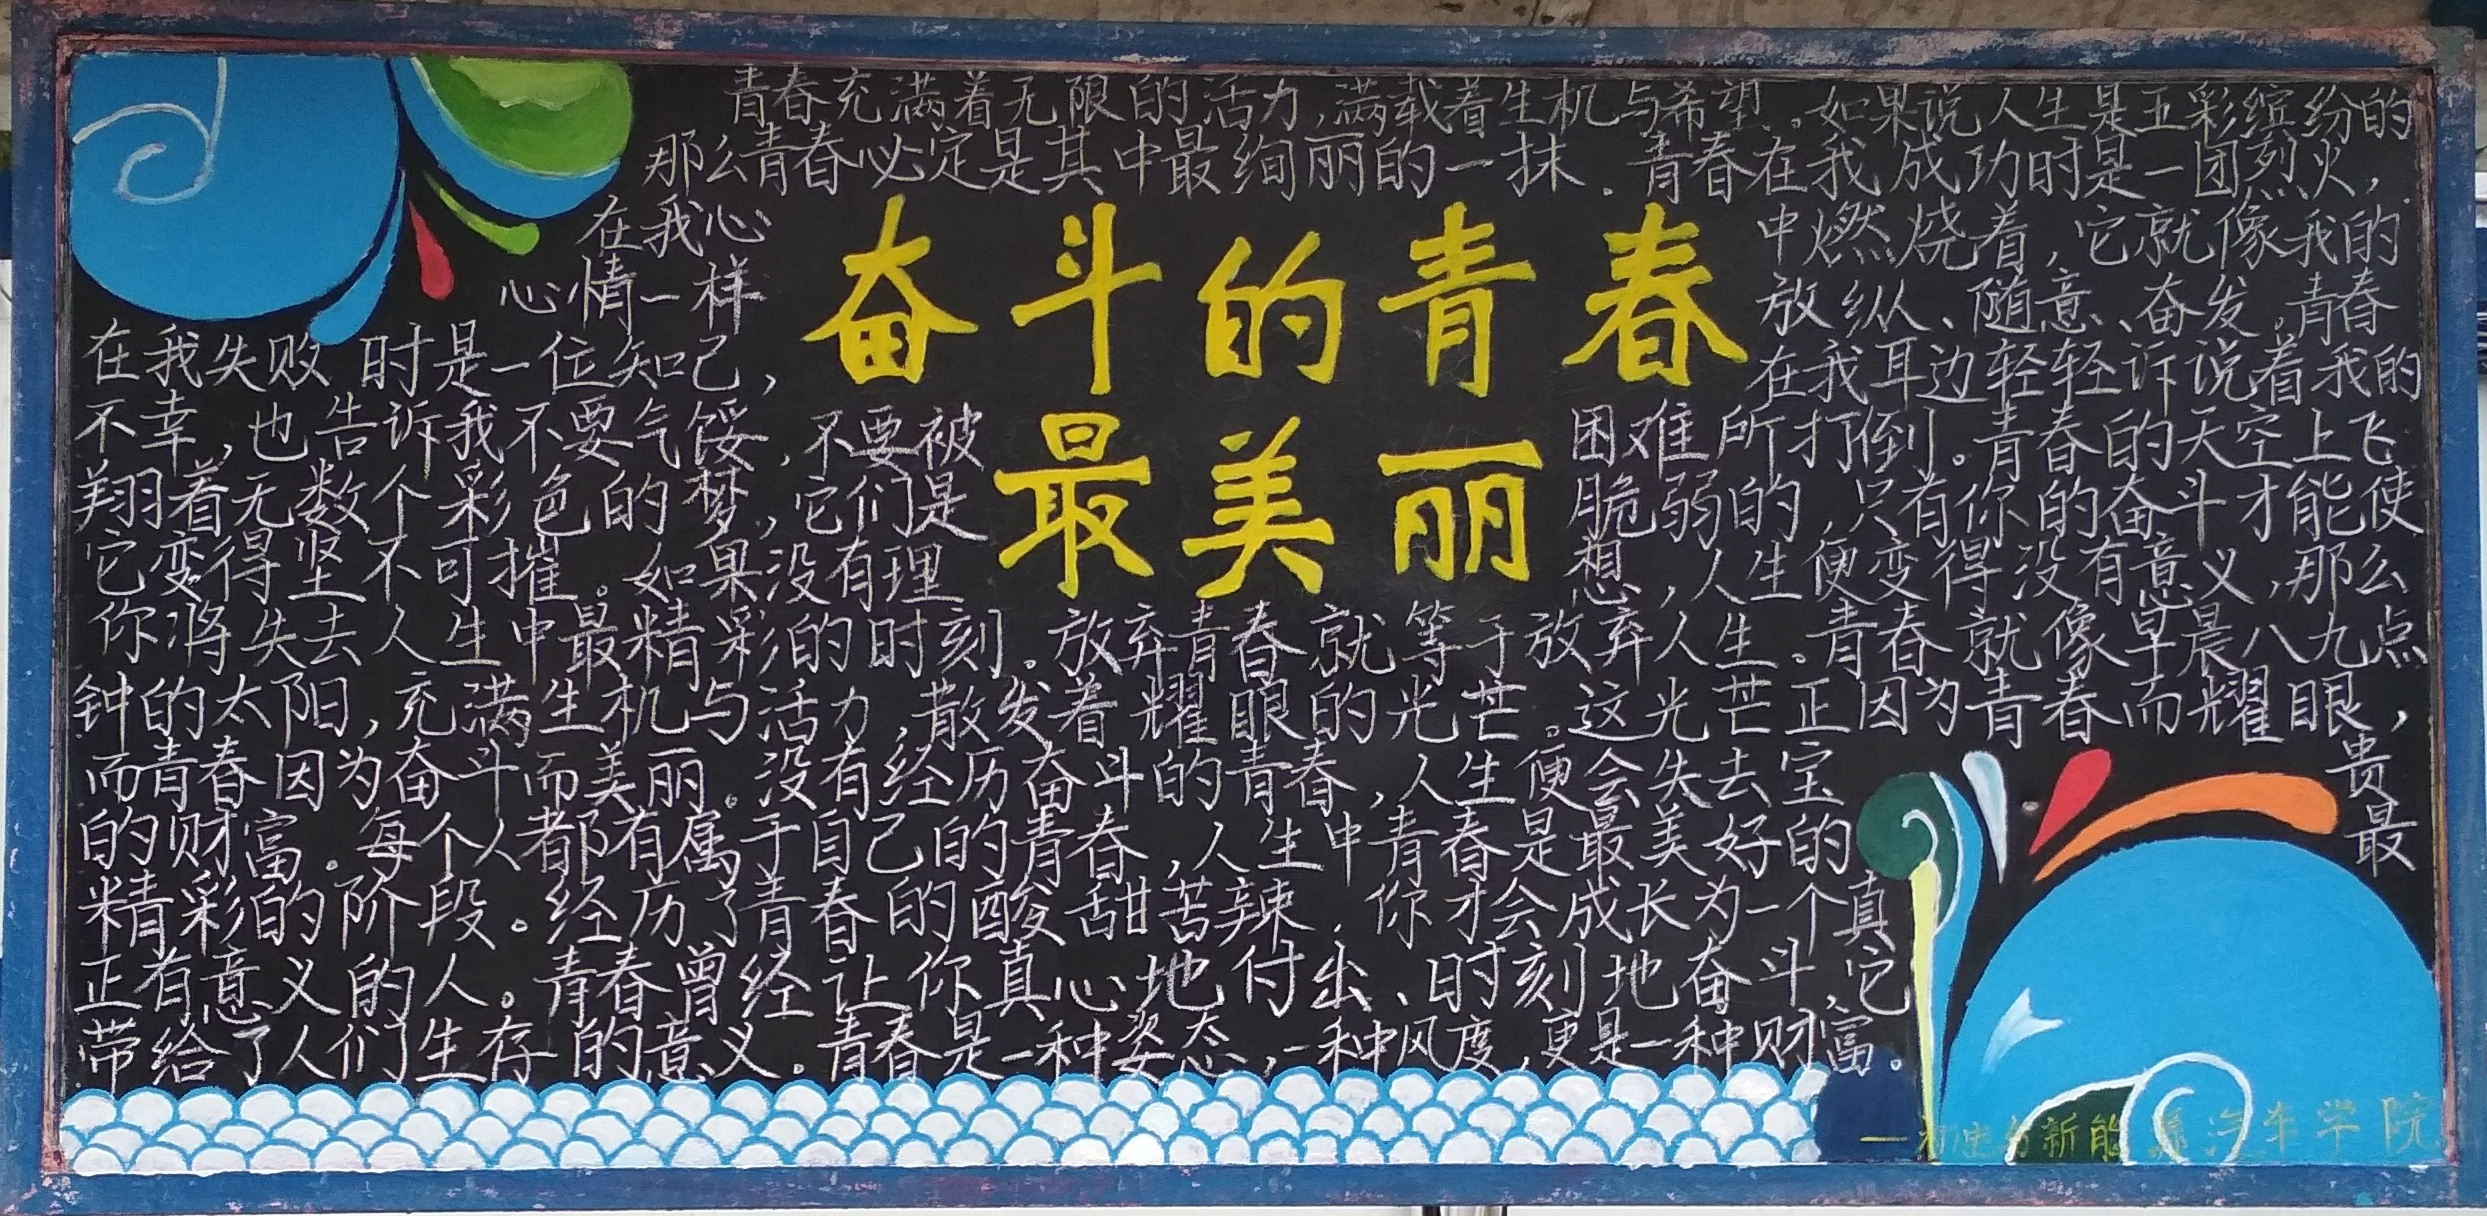 青春充满着无限的活力,满载着生机与希望。如果说人生是五彩缤纷的
那么青春必定是其中最绚丽的一抹.青春在我成功时是一团烈火,
在我心中燃烧着,它就像我的
心情一样放纵、随意、奋发。青春
奋斗的青春
最美丽
在我失败时是一位知己,在我耳边轻轻诉说着我的
不幸,也告诉我不要气馁,不要被困难所打倒。青春的天空上飞
翔着无数个彩色的梦,它们是脆弱的,只有你的奋斗才能使
它变得坚不可摧。如果没有理想,人生便变得没有意义,那么
你将失去人生中最精彩的时刻。放弃青春就等于放弃人生。青春就像早晨八九点
钟的太阳,充满生机与活力,散发着耀眼的光芒。这光芒正因为青春而耀眼,
而青春因为奋斗而美丽。没有经历奋斗的青春,人生便会失去宝贵
的财富。每个人都有属于自己的青春,人生中青春是最美好的最
精彩的阶段。经历了青春的酸甜苦辣,你才会成长为一个真
正有意义的人。青春曾经让你真心地付出、时刻地奋斗,它
带给了人们生存的意义。青春是一种姿态,一种风度,更是一种财富。
新能源汽车学院